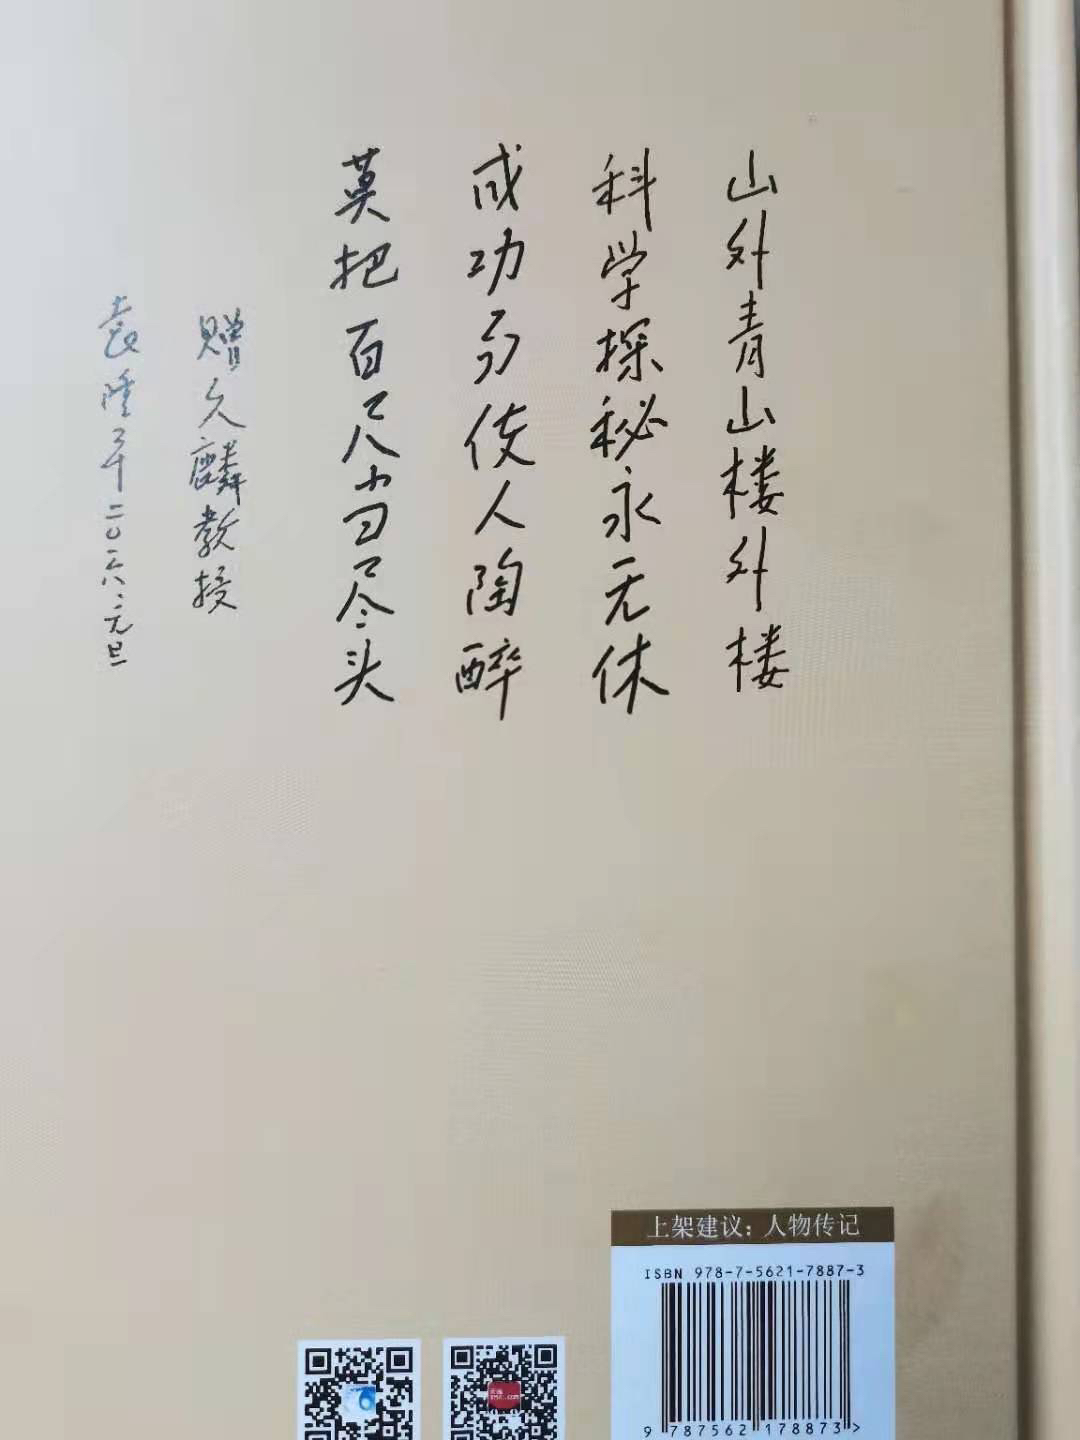 山外青山楼外楼
科学探秘永无休
成功易使人陶醉
莫把百尺当尽头
赠久麟教授
袁隆平二〇一六.元旦
上架建议：人物传记
ISBN 978-7-5621-7887-3
9 787562 178873>